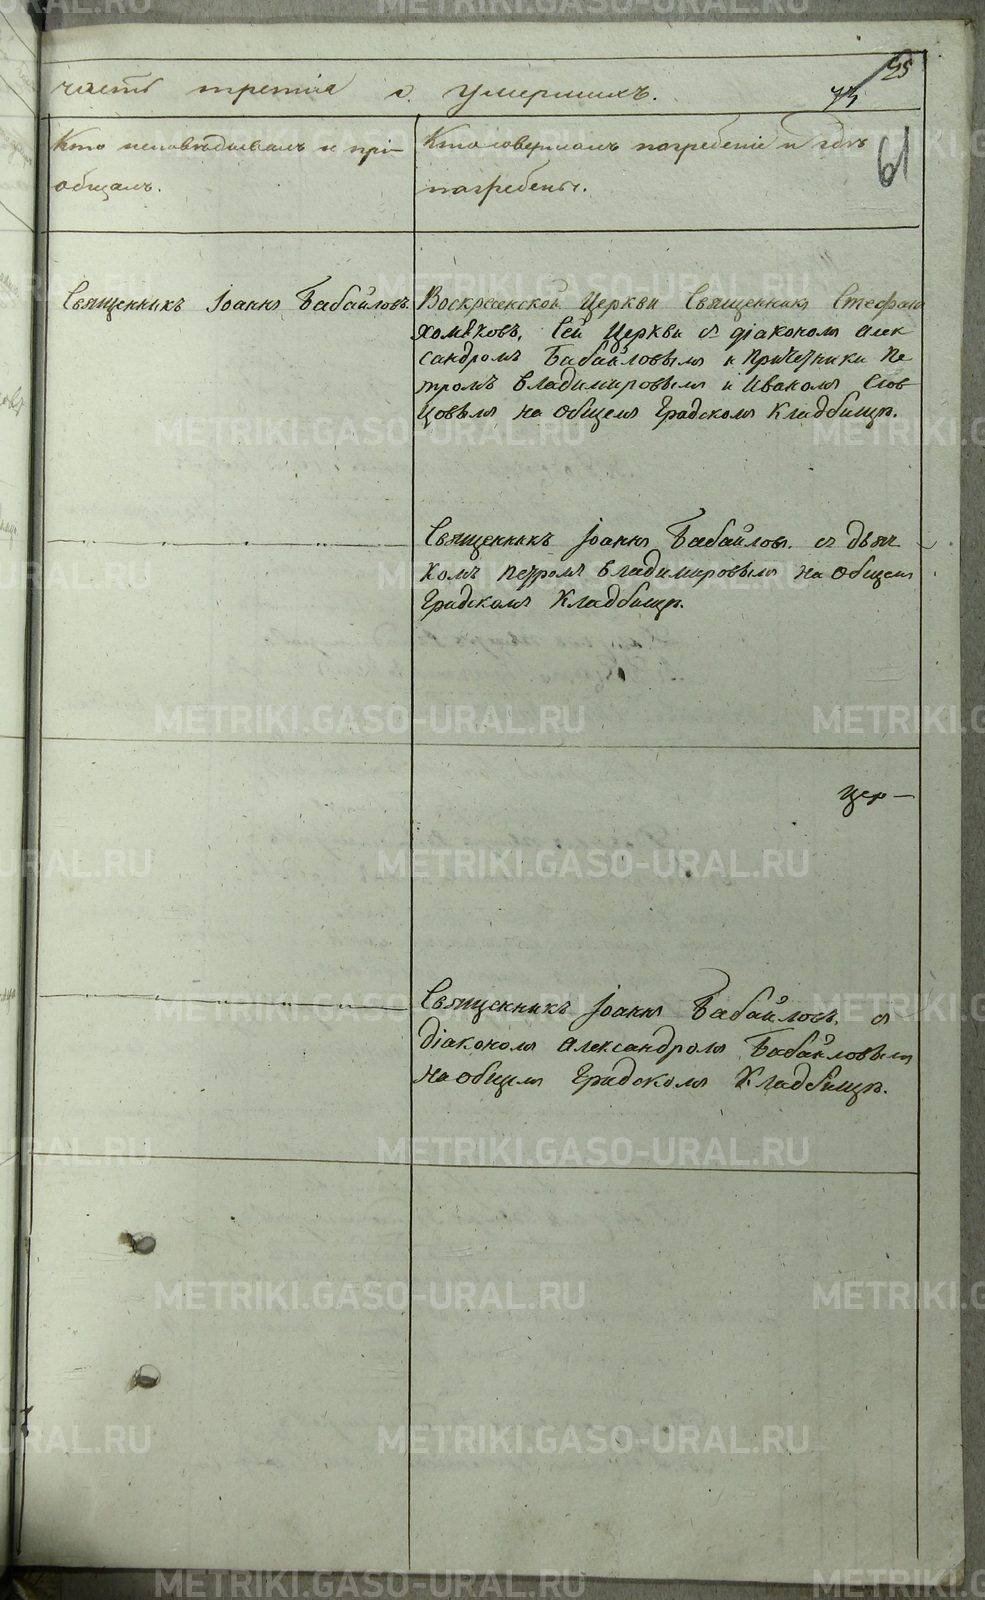 часть третія о умершихъ.
45
73
61
Кто исповѣдывалъ и прі-
общалъ.
Кто совершалъ погребеніе и гдѣ
погребены.
Священникъ Іоаннъ Бабайловъ.
Воскресенской Церкви Священникъ Стефанъ
Хомяковъ, Сей Церкви съ діакономъ Алек
сандромъ Бабайловымъ и Причетники Пе
тромъ Владимировымъ и Иваномъ Слов
цовымъ на общемъ Градскомъ Кладбищѣ.
Священникъ Іоаннъ Бабайловъ. съ дьяч
комъ Петромъ Владимировымъ на общемъ
Градскомъ Кладбищѣ.
Цер-
Священникъ Іоаннъ Бабайловъ, съ
діакономъ Александромъ Бабайловымъ
на общемъ Градскомъ Кладбищѣ.
METRIKI.GASO-URAL.RU